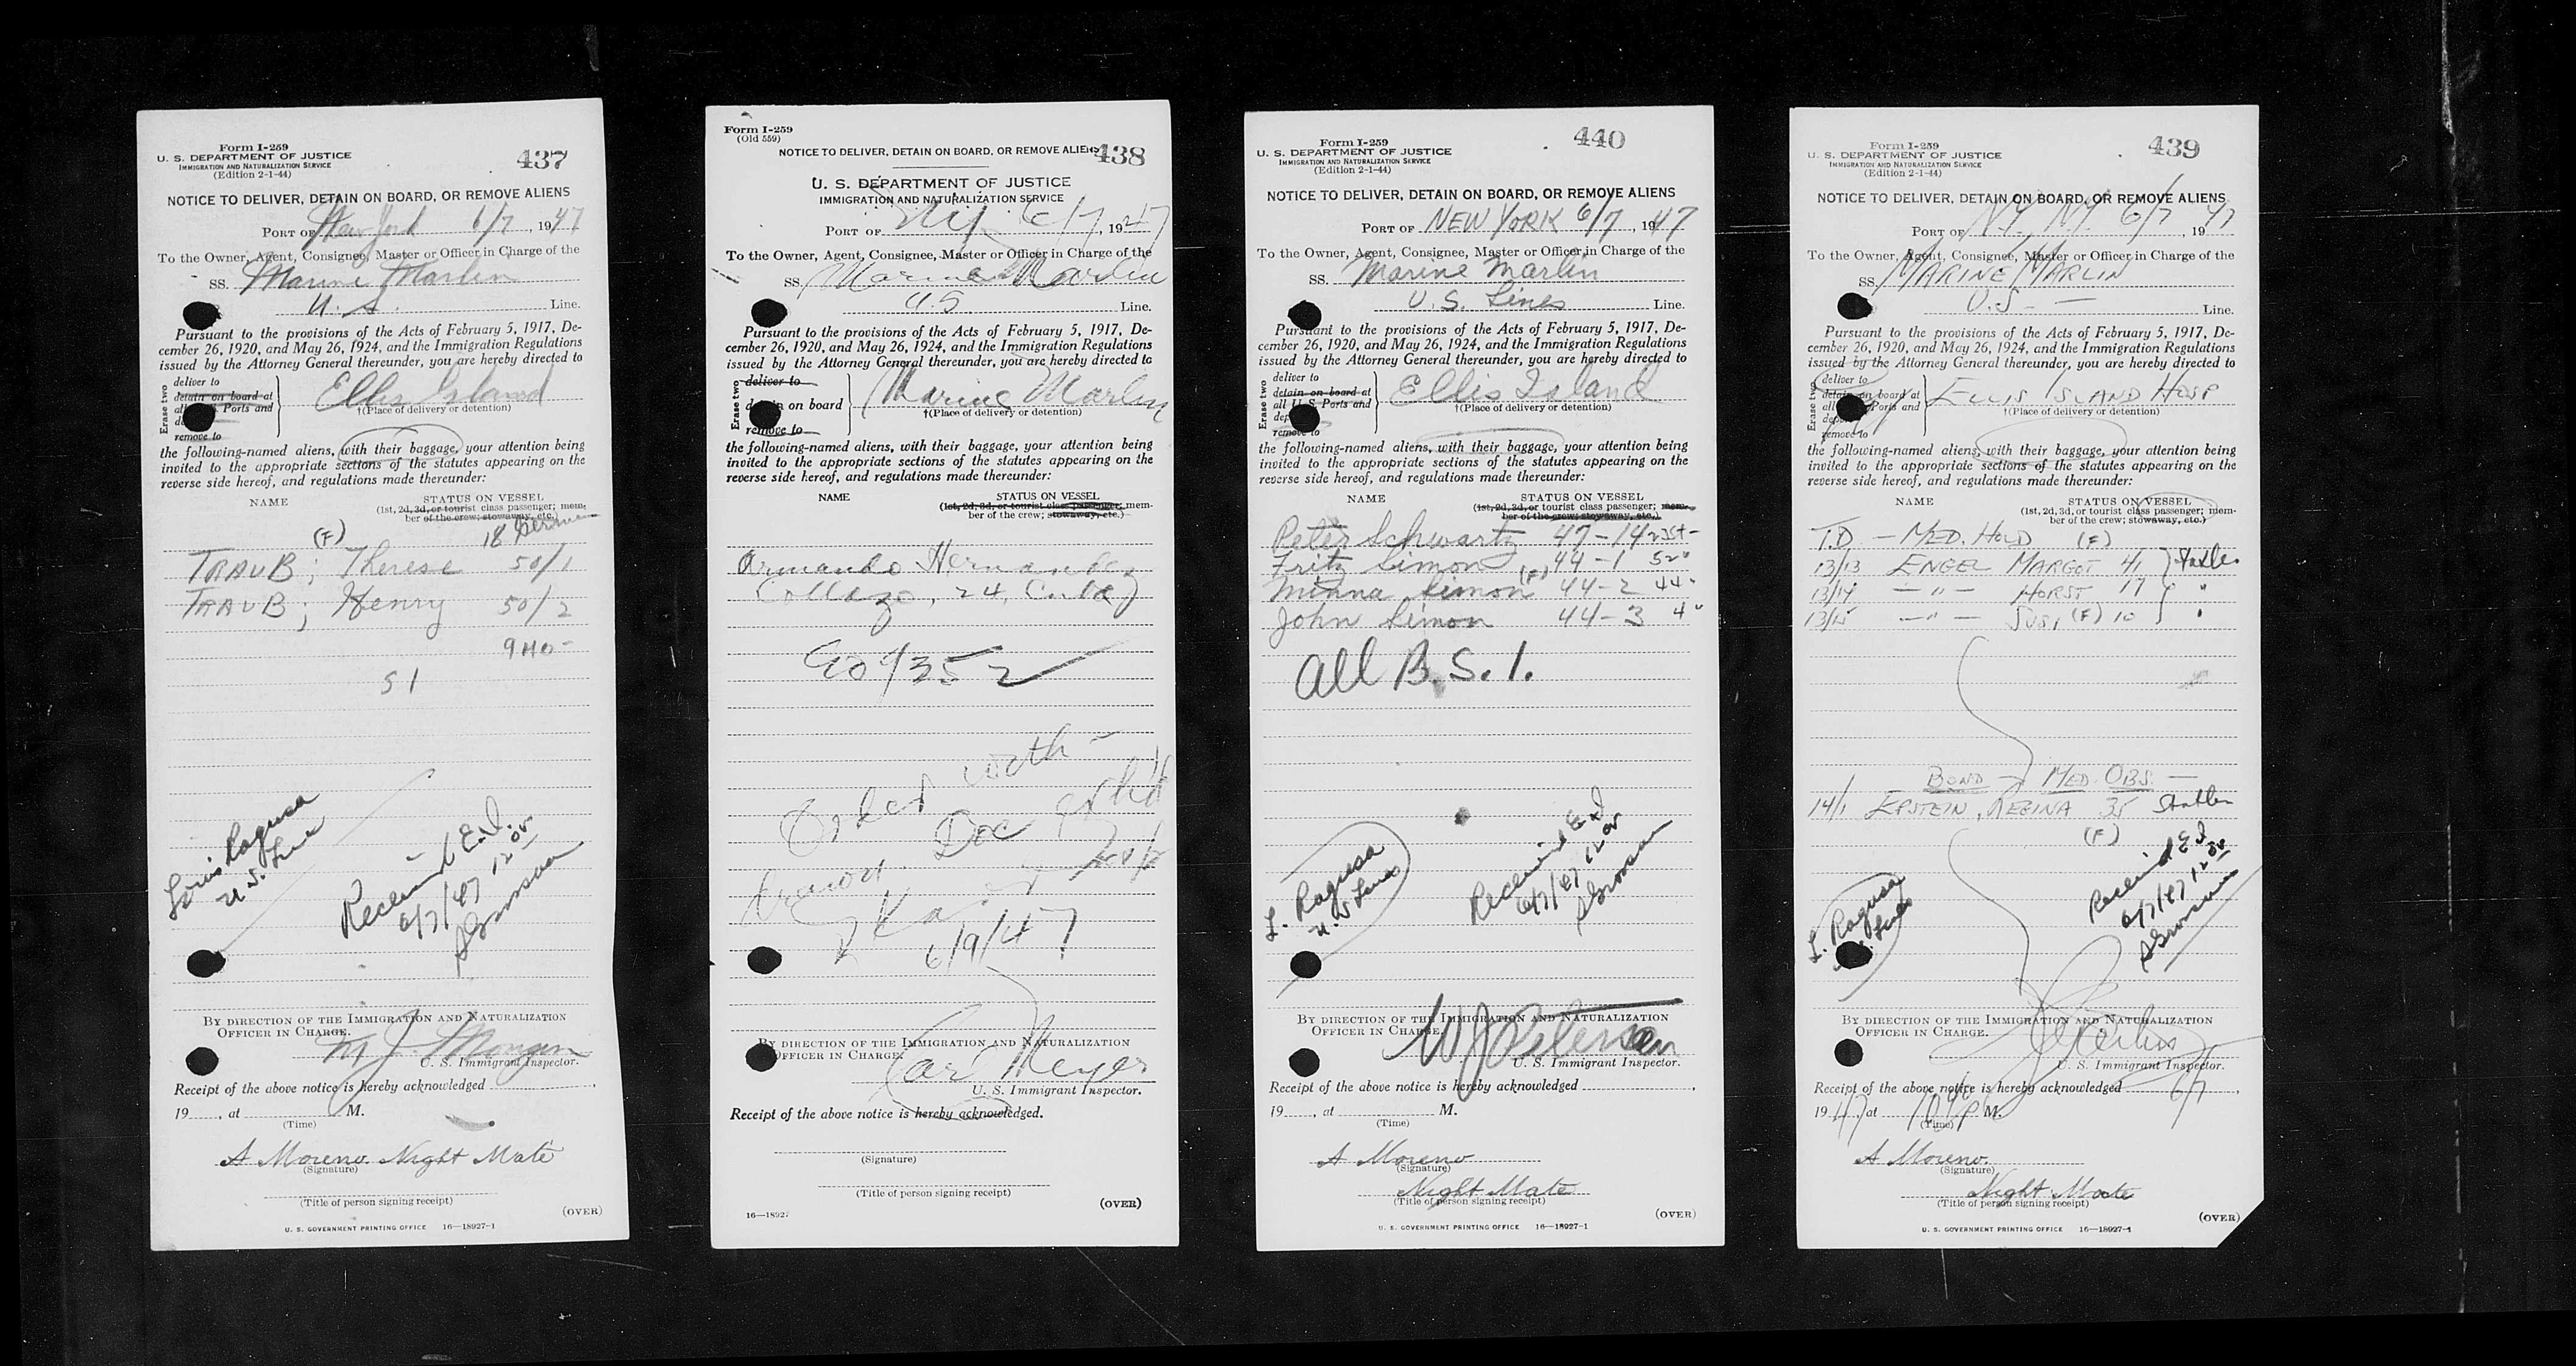 Form I-259
U. S. DEPARTMENT OF JUSTICE
IMMIGRATION AND NATURALIZATION SERVICE
(Edition 2-1-44)
437
NOTICE TO DELIVER, DETAIN ON BOARD, OR REMOVE ALIENS
PORT OF New York 6/7, 1947
To the Owner, Agent, Consignee, Master or Officer in Charge of the
SS. Marine Marlin
U. S. Line.
Pursuant to the provisions of the Acts of February 5, 1917, De-
cember 26, 1920, and May 26, 1924, and the Immigration Regulations
issued by the Attorney General thereunder, you are hereby directed to
Erase two
deliver to
detain on board at
all U. S. Ports and
remove to
Ellis Island
†(Place of delivery or detention)
the following-named aliens, with their baggage, your attention being
invited to the appropriate sections of the statutes appearing on the
reverse side hereof, and regulations made thereunder:
NAME STATUS ON VESSEL
(1st, 2d, 3d, or tourist class passenger; mem-
ber of the crew; stowaway, etc.)
(F) 18 German
TRAUB; Therese 50/1
TRAUB; Henry 50/2
S I
Louis Ragusa
U. S. Line
Received E.I.
6/7/47 12 05
BY DIRECTION OF THE IMMIGRATION AND NATURALIZATION
OFFICER IN CHARGE.
U. S. Immigrant Inspector.
Receipt of the above notice is hereby acknowledged
19 , at M.
(Time)
A Moreno. Night Mate
(Signature)
(Title of person signing receipt)
(OVER)
U. S. GOVERNMENT PRINTING OFFICE 16—18927-1
Form I-259
(Old 559)
NOTICE TO DELIVER, DETAIN ON BOARD, OR REMOVE ALIENS
438
U. S. DEPARTMENT OF JUSTICE
IMMIGRATION AND NATURALIZATION SERVICE
PORT OF NY 6/7, 1947
To the Owner, Agent, Consignee, Master or Officer in Charge of the
SS. Marine Marlin
U.S. Line.
Pursuant to the provisions of the Acts of February 5, 1917, De-
cember 26, 1920, and May 26, 1924, and the Immigration Regulations
issued by the Attorney General thereunder, you are hereby directed to
Erase two
deliver to
detain on board
remove to
Marine Marlin
†(Place of delivery or detention)
the following-named aliens, with their baggage, your attention being
invited to the appropriate sections of the statutes appearing on the
reverse side hereof, and regulations made thereunder:
NAME STATUS ON VESSEL
(1st, 2d, 3d, or tourist class passenger; mem-
ber of the crew; stowaway, etc.)
Armando Hernandez
Collazo, 24, Cuba
Doc
6/9/47
BY DIRECTION OF THE IMMIGRATION AND NATURALIZATION
OFFICER IN CHARGE.
Carl Meyer
U. S. Immigrant Inspector.
Receipt of the above notice is hereby acknowledged.
(Signature)
(Title of person signing receipt)
(OVER)
16—18927
Form I-259
U. S. DEPARTMENT OF JUSTICE
IMMIGRATION AND NATURALIZATION SERVICE
(Edition 2-1-44)
440
NOTICE TO DELIVER, DETAIN ON BOARD, OR REMOVE ALIENS
PORT OF NEW YORK 6/7, 1947
To the Owner, Agent, Consignee, Master or Officer in Charge of the
SS. Marine Marlin
U.S. Lines Line.
Pursuant to the provisions of the Acts of February 5, 1917, De-
cember 26, 1920, and May 26, 1924, and the Immigration Regulations
issued by the Attorney General thereunder, you are hereby directed to
Erase two
deliver to
detain on board at
all U. S. Ports and
remove to
Ellis Island
†(Place of delivery or detention)
the following-named aliens, with their baggage, your attention being
invited to the appropriate sections of the statutes appearing on the
reverse side hereof, and regulations made thereunder:
NAME STATUS ON VESSEL
(1st, 2d, 3d, or tourist class passenger; mem-
ber of the crew; stowaway, etc.)
Peter Schwartz 47-14
Fritz Simon 44-1 52"
Minna Simon (F) 44-2 44"
John Simon 44-3 4"
All B.S.I.
L. Ragusa
U.S Lines
Received E I
6/7/47 12 05
BY DIRECTION OF THE IMMIGRATION AND NATURALIZATION
OFFICER IN CHARGE.
U. S. Immigrant Inspector.
Receipt of the above notice is hereby acknowledged
19 , at M.
(Time)
A Moreno
(Signature)
Night Mate
(Title of person signing receipt)
(OVER)
U. S. GOVERNMENT PRINTING OFFICE 16—18927-1
Form I-259
U. S. DEPARTMENT OF JUSTICE
IMMIGRATION AND NATURALIZATION SERVICE
(Edition 2-1-44)
439
NOTICE TO DELIVER, DETAIN ON BOARD, OR REMOVE ALIENS
PORT OF N.Y. N.Y. 6/7, 1947
To the Owner, Agent, Consignee, Master or Officer in Charge of the
SS. MARINE MARLIN
U.S. — Line.
Pursuant to the provisions of the Acts of February 5, 1917, De-
cember 26, 1920, and May 26, 1924, and the Immigration Regulations
issued by the Attorney General thereunder, you are hereby directed to
Erase two
deliver to
detain on board at
all U. S. Ports and
remove to
ELLIS ISLAND HOSP
†(Place of delivery or detention)
the following-named aliens, with their baggage, your attention being
invited to the appropriate sections of the statutes appearing on the
reverse side hereof, and regulations made thereunder:
NAME STATUS ON VESSEL
(1st, 2d, 3d, or tourist class passenger; mem-
ber of the crew; stowaway, etc.)
T.D — MED. HOLD (F)
13/13 ENGEL MARGOT 41
13/14 — " — HORST 17 "
13/15 — " — SUSI (F) 10 "
BOND — MED. OBS. —
14/1 EPSTEIN, REGINA 35
(F)
L. Ragusa
U.S. Lines
Received E I
6/7/47 12 05
BY DIRECTION OF THE IMMIGRATION AND NATURALIZATION
OFFICER IN CHARGE.
U. S. Immigrant Inspector.
Receipt of the above notice is hereby acknowledged 6/7,
1947 at P M.
(Time)
A Moreno.
(Signature)
Night Mate
(Title of person signing receipt)
(OVER)
U. S. GOVERNMENT PRINTING OFFICE 16—18927-1